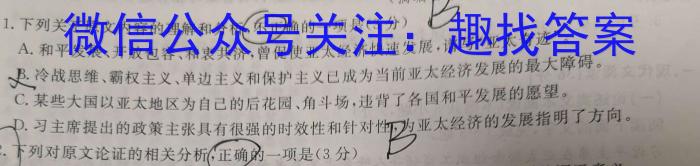 B
1.下列关 原文 容的理解和分析,不正确的一项是(3分)
微信公众号关注:趣找答案
A.和平发展、开放包容、和衷共济,曾促使亚太经济快速发展,
B.冷战思维、霸权主义、单边主义和保护主义已成为当前亚太经济发展的最大障碍。
C.某些大国以亚太地区为自己的后花园、角斗场,违背了各国和平发展的愿望。
D.习主席提出的政策主张具有很强的时效性和针对性,为亚太经济的发展指明了方向。
下列对原文论证的相关分析,正确的一项是(3分)
B